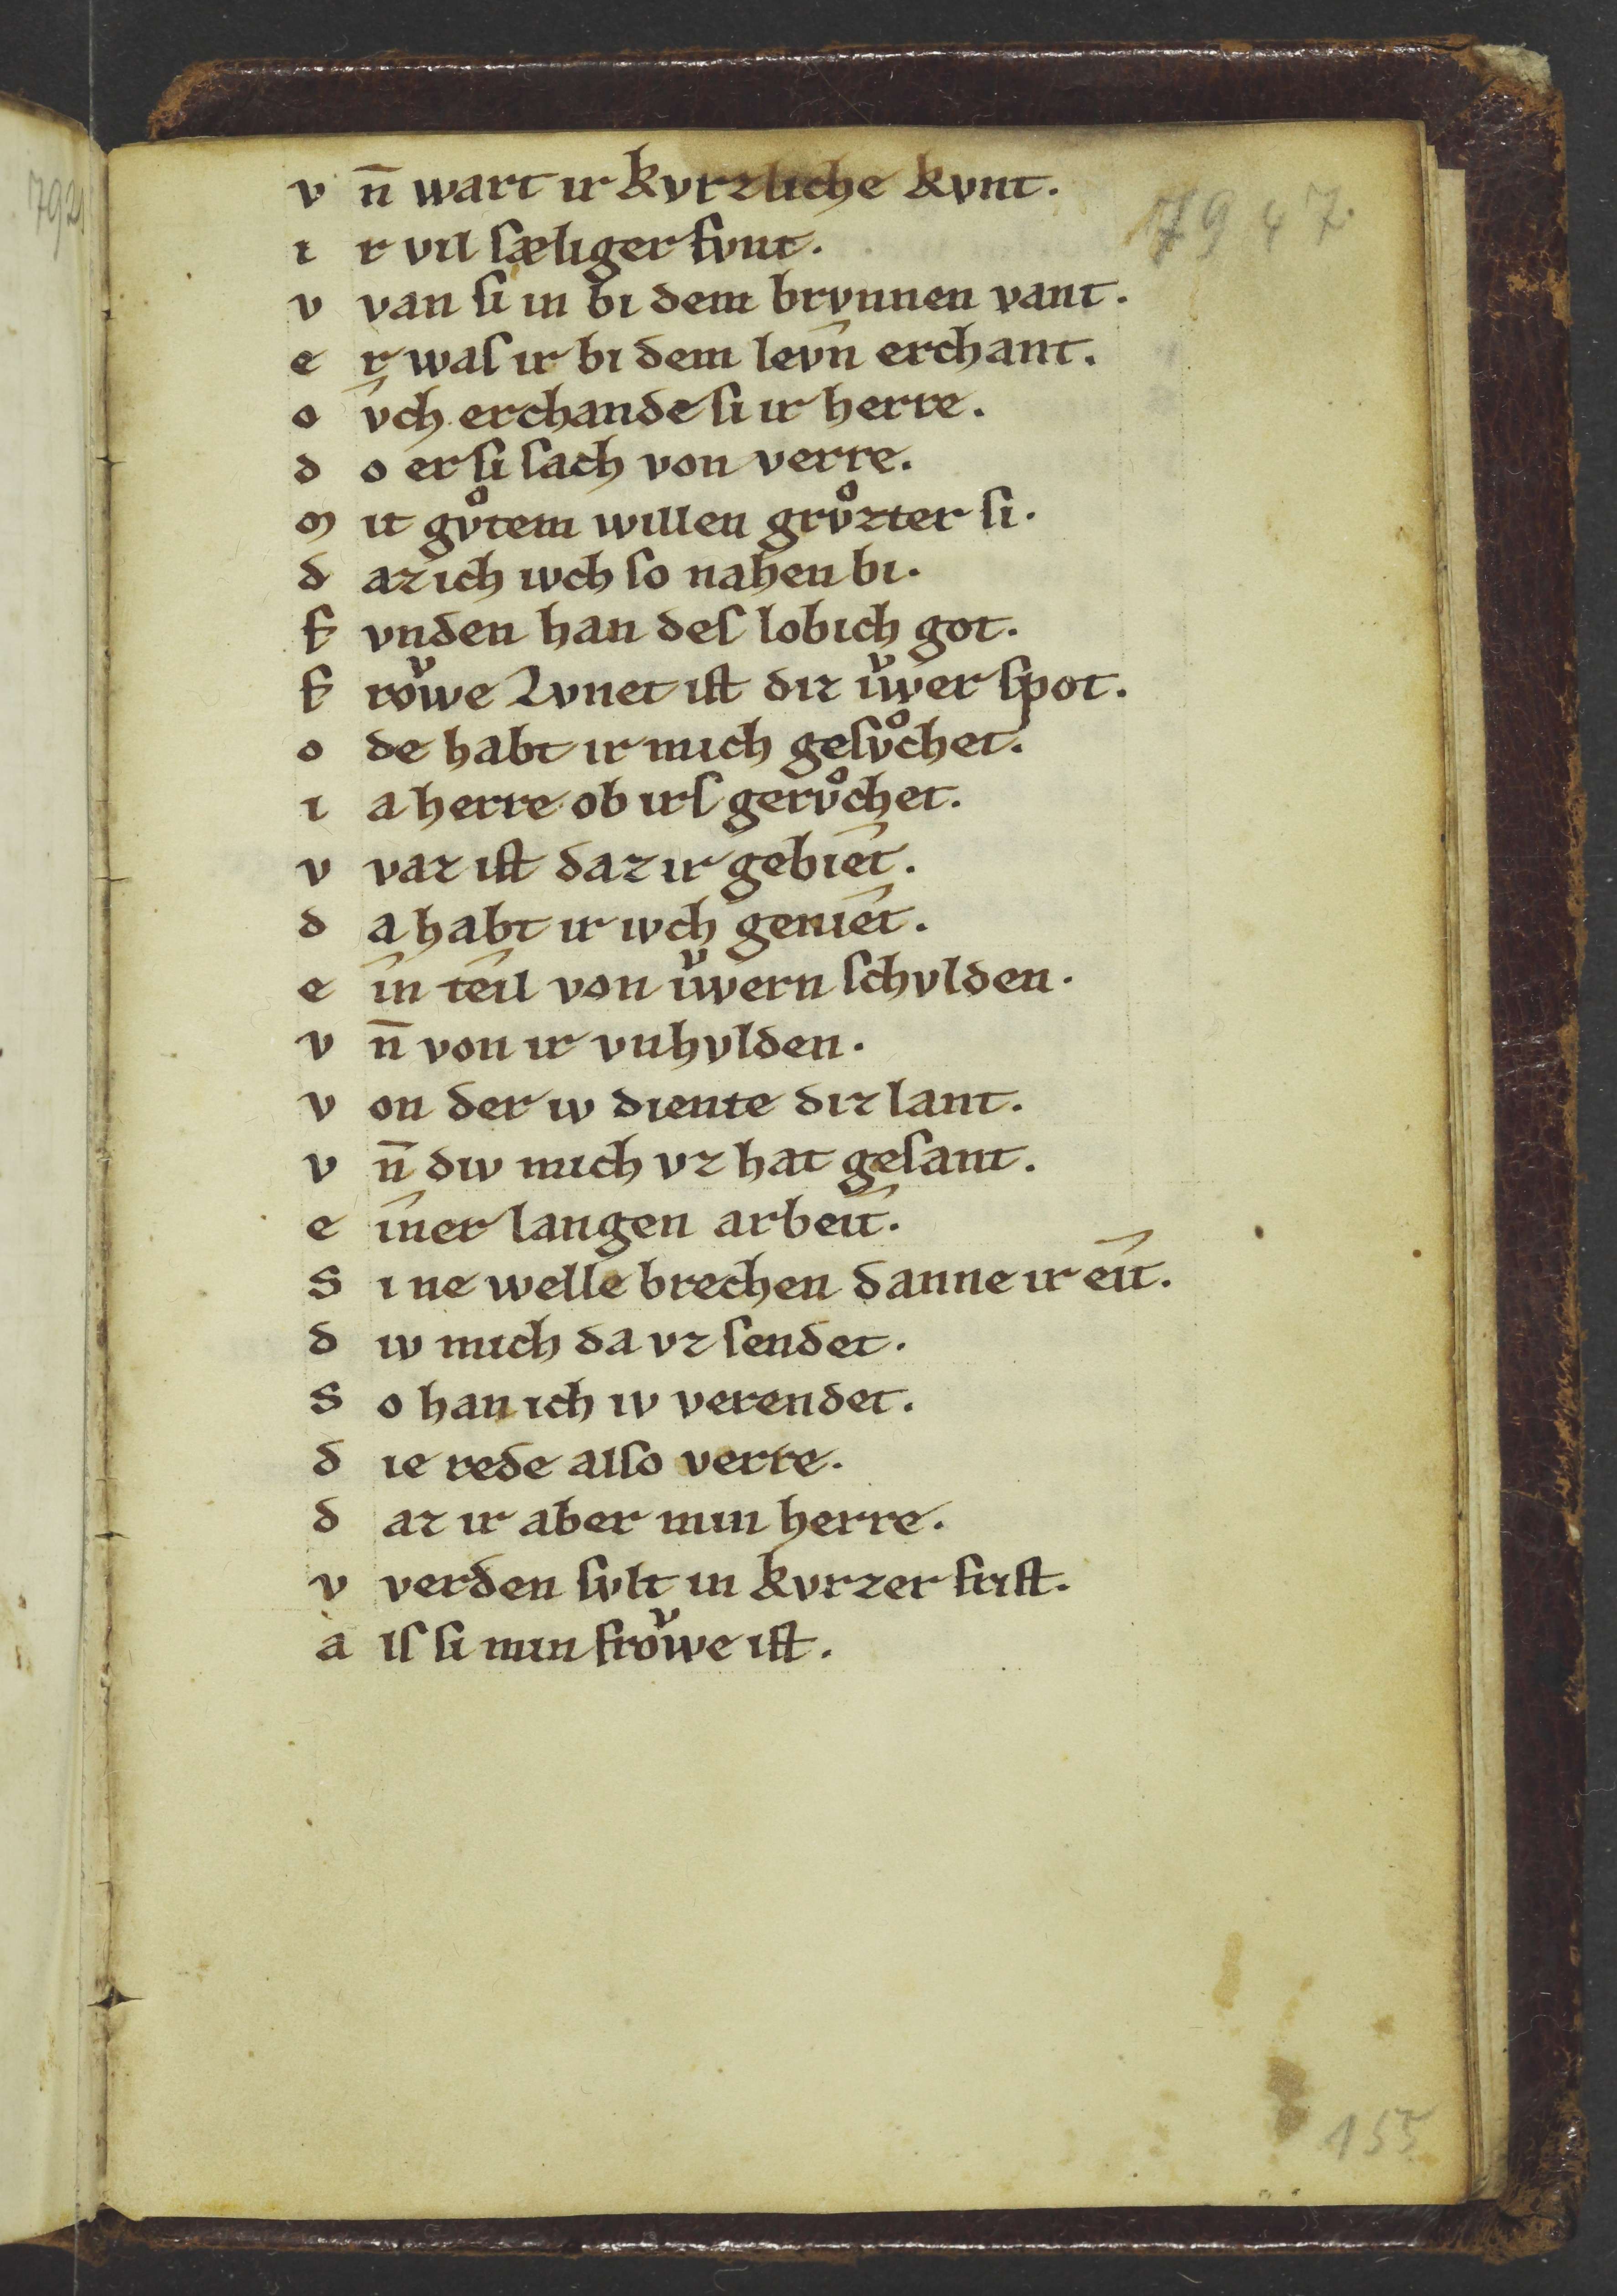 7921
7947.
v n̄ wart ir kvrzliche kvnt.
i r vil sæliger fvnt.
v van si in bi dem brvnnen vant.
e r was ir bi dem levn̂ erchant.
o v̂ch erchande si ir herre.
d o er si sach von verre.
m it gvͦtem willen grvͦzter si.
d az ich iwch so nahen bi.
f vnden han des lobich got.
f roͮwe Lvnet ist diz iͮwer spot.
o de habt ir mich gesvͦchet.
i a herre ob irs gervͦchet.
v vaz ist daz ir gebiêt.
d a habt ir iwch geniêt.
e în têil von iͮwern schvlden.
v n̄ von ir vnhvlden.
v on der iw diente diz lant.
v n̄ div mich vz hat gesant.
e îner langen arbeît.
s i ne welle brechen danne ir eît.
d iv mich da vz sendet.
s o han ich iv verendet.
d ie rede also verre.
d az ir aber min herre.
v verden svlt in kvrzer frist.
a ls si min froͮwe ist.
155